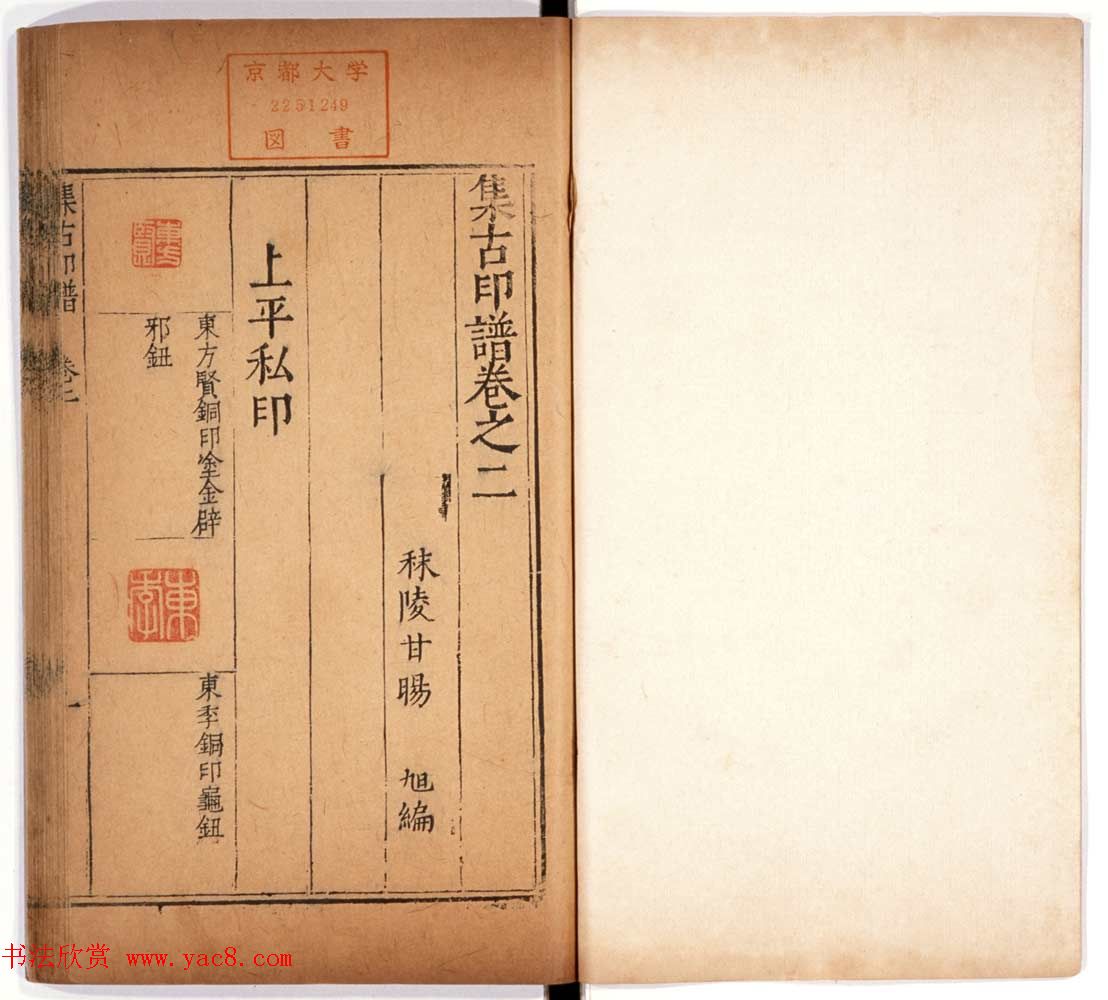 京都大学
2251249
図書
集古印譜卷之二
秣陵甘暘 旭編
上平私印
東方賢銅印塗金辟
邪鈕
東李銅印龜鈕
集古印譜 卷二
一
书法欣赏 www.yac8.com